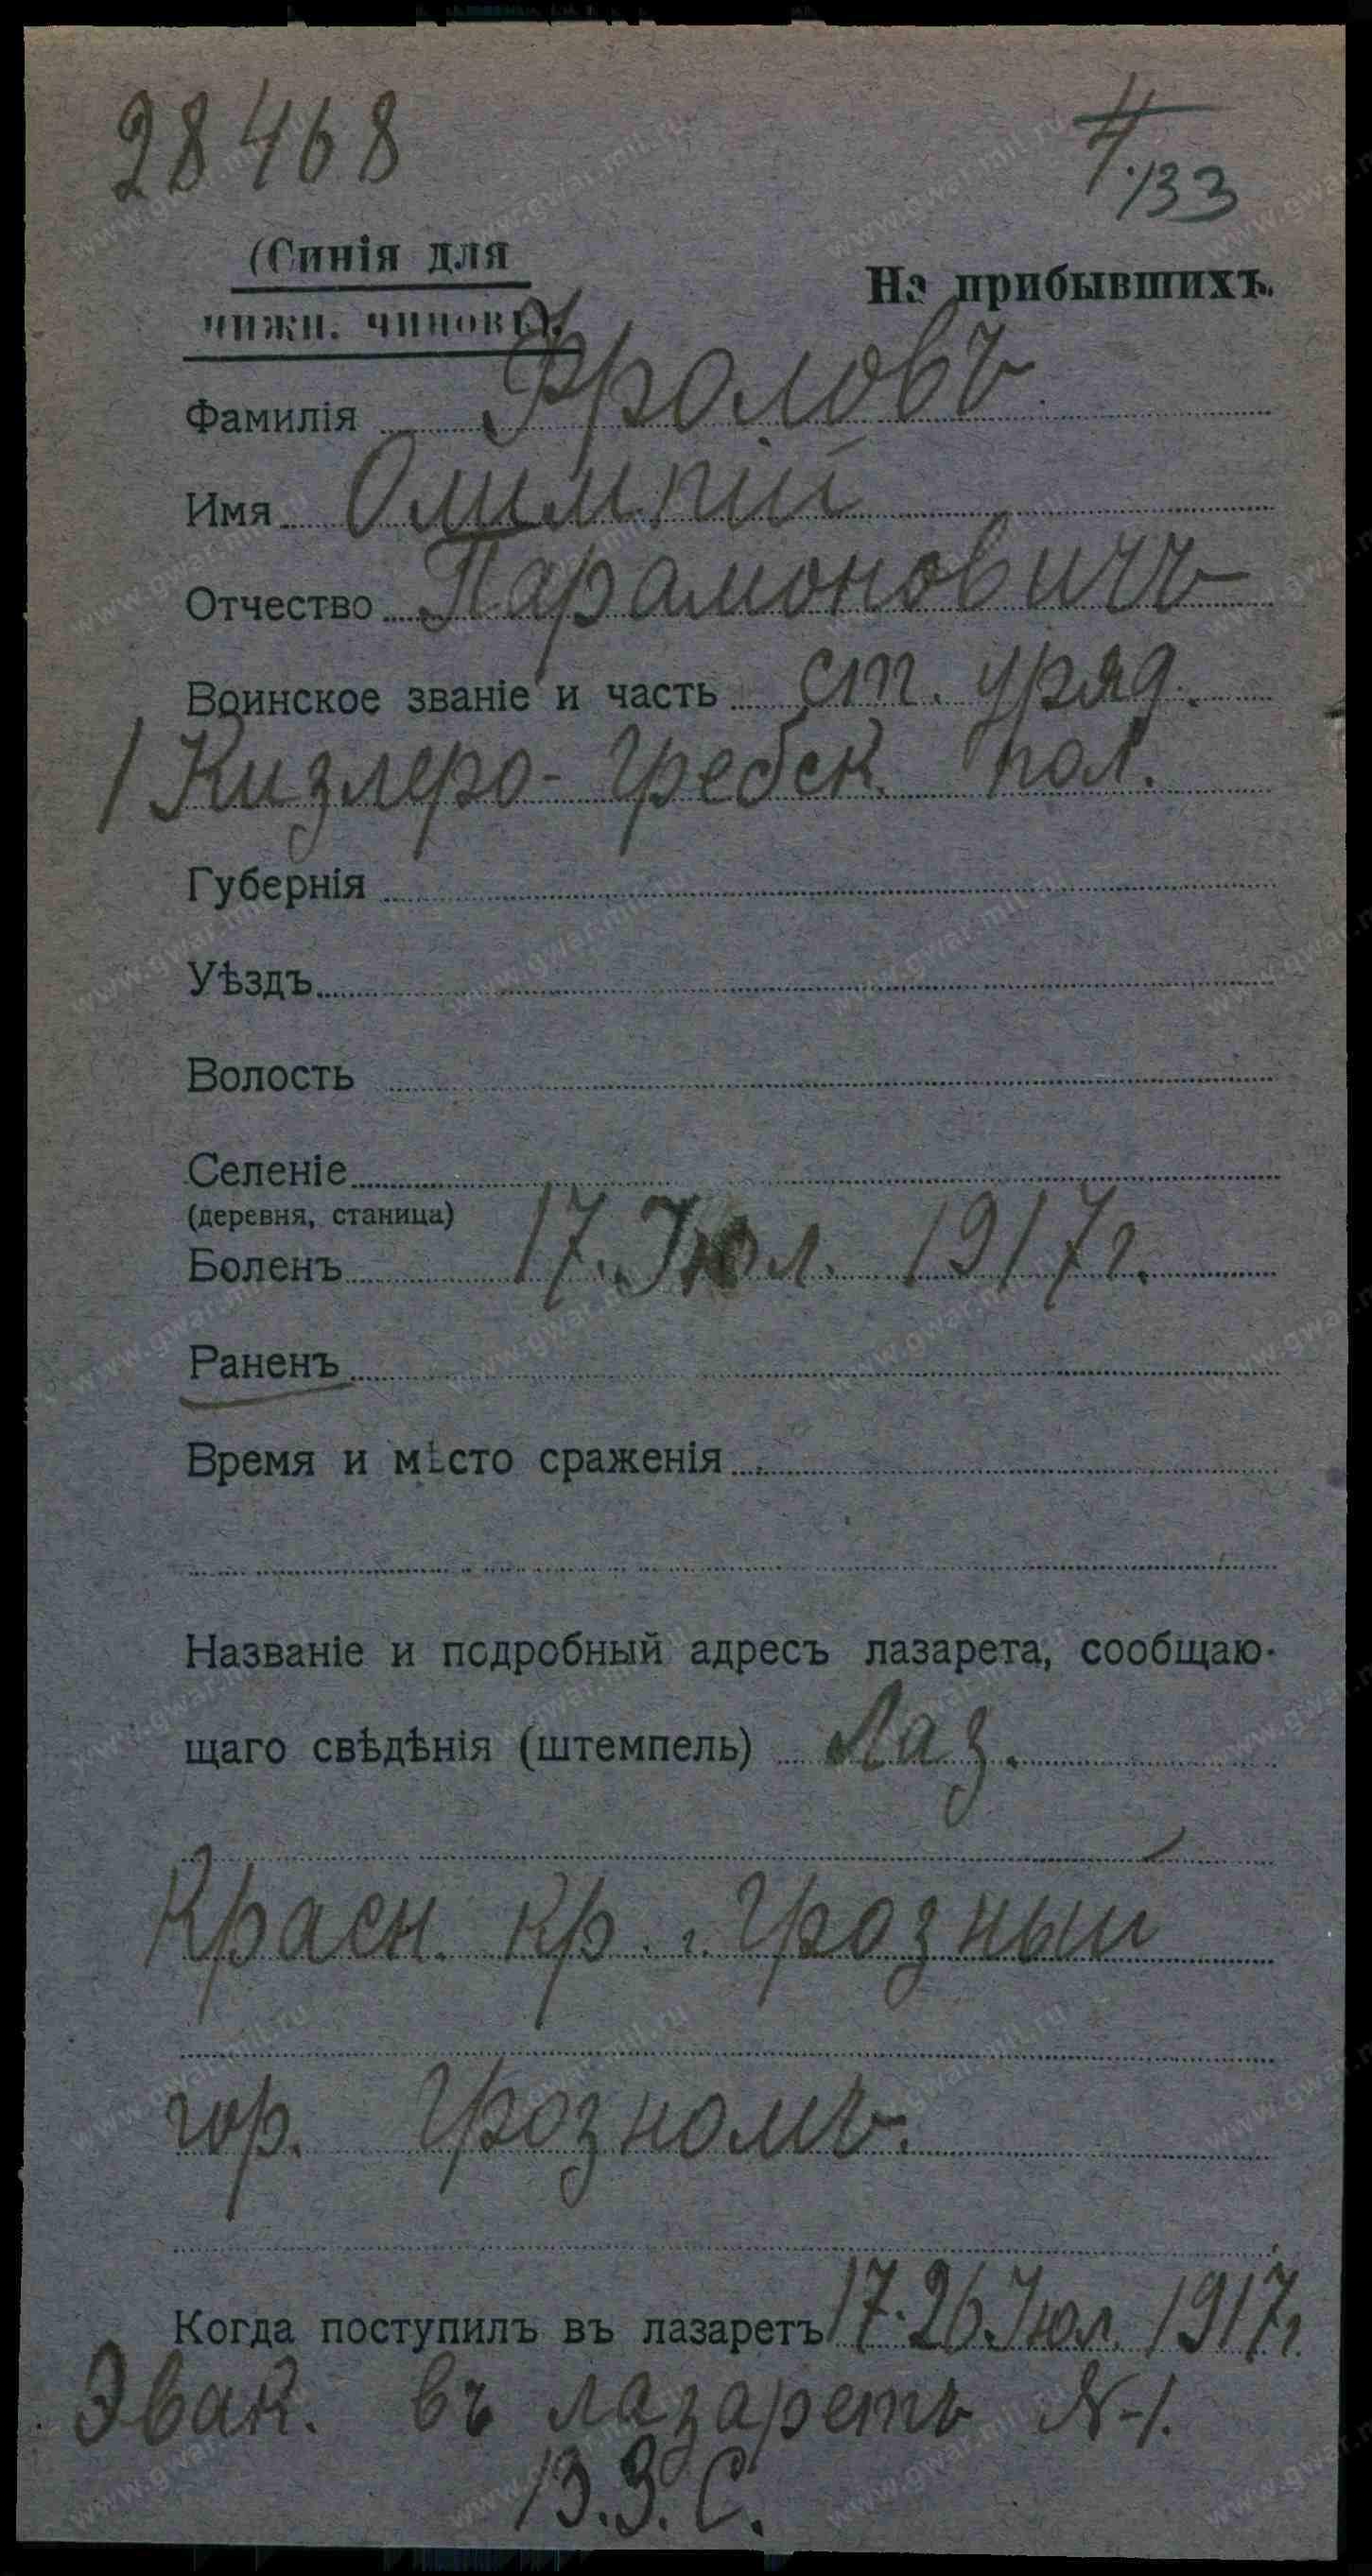 28468
4/133
(Синія для
нижн. чиновъ).
На прибывшихъ.
Фамилія Фроловъ.
Имя Олимпій
Отчество Парамоновичъ
Воинское званіе и часть ст. уряд.
1 Кизлеро-Гребск. пол.
Губернія
Уѣздъ
Волость
Селеніе
(деревня, станица)
Боленъ 17. Іюл. 1917 г.
Раненъ
Время и мѣсто сраженія
Названіе и подробный адресъ лазарета, сообщаю-
щаго свѣдѣнія (штемпель) Лаз.
Красн. кр. Грозный
гор. Грозномъ.
Когда поступилъ въ лазаретъ 17.26. Іюл. 1917 г.
Эвак. въ лазаретъ N-1.
В.З.С.